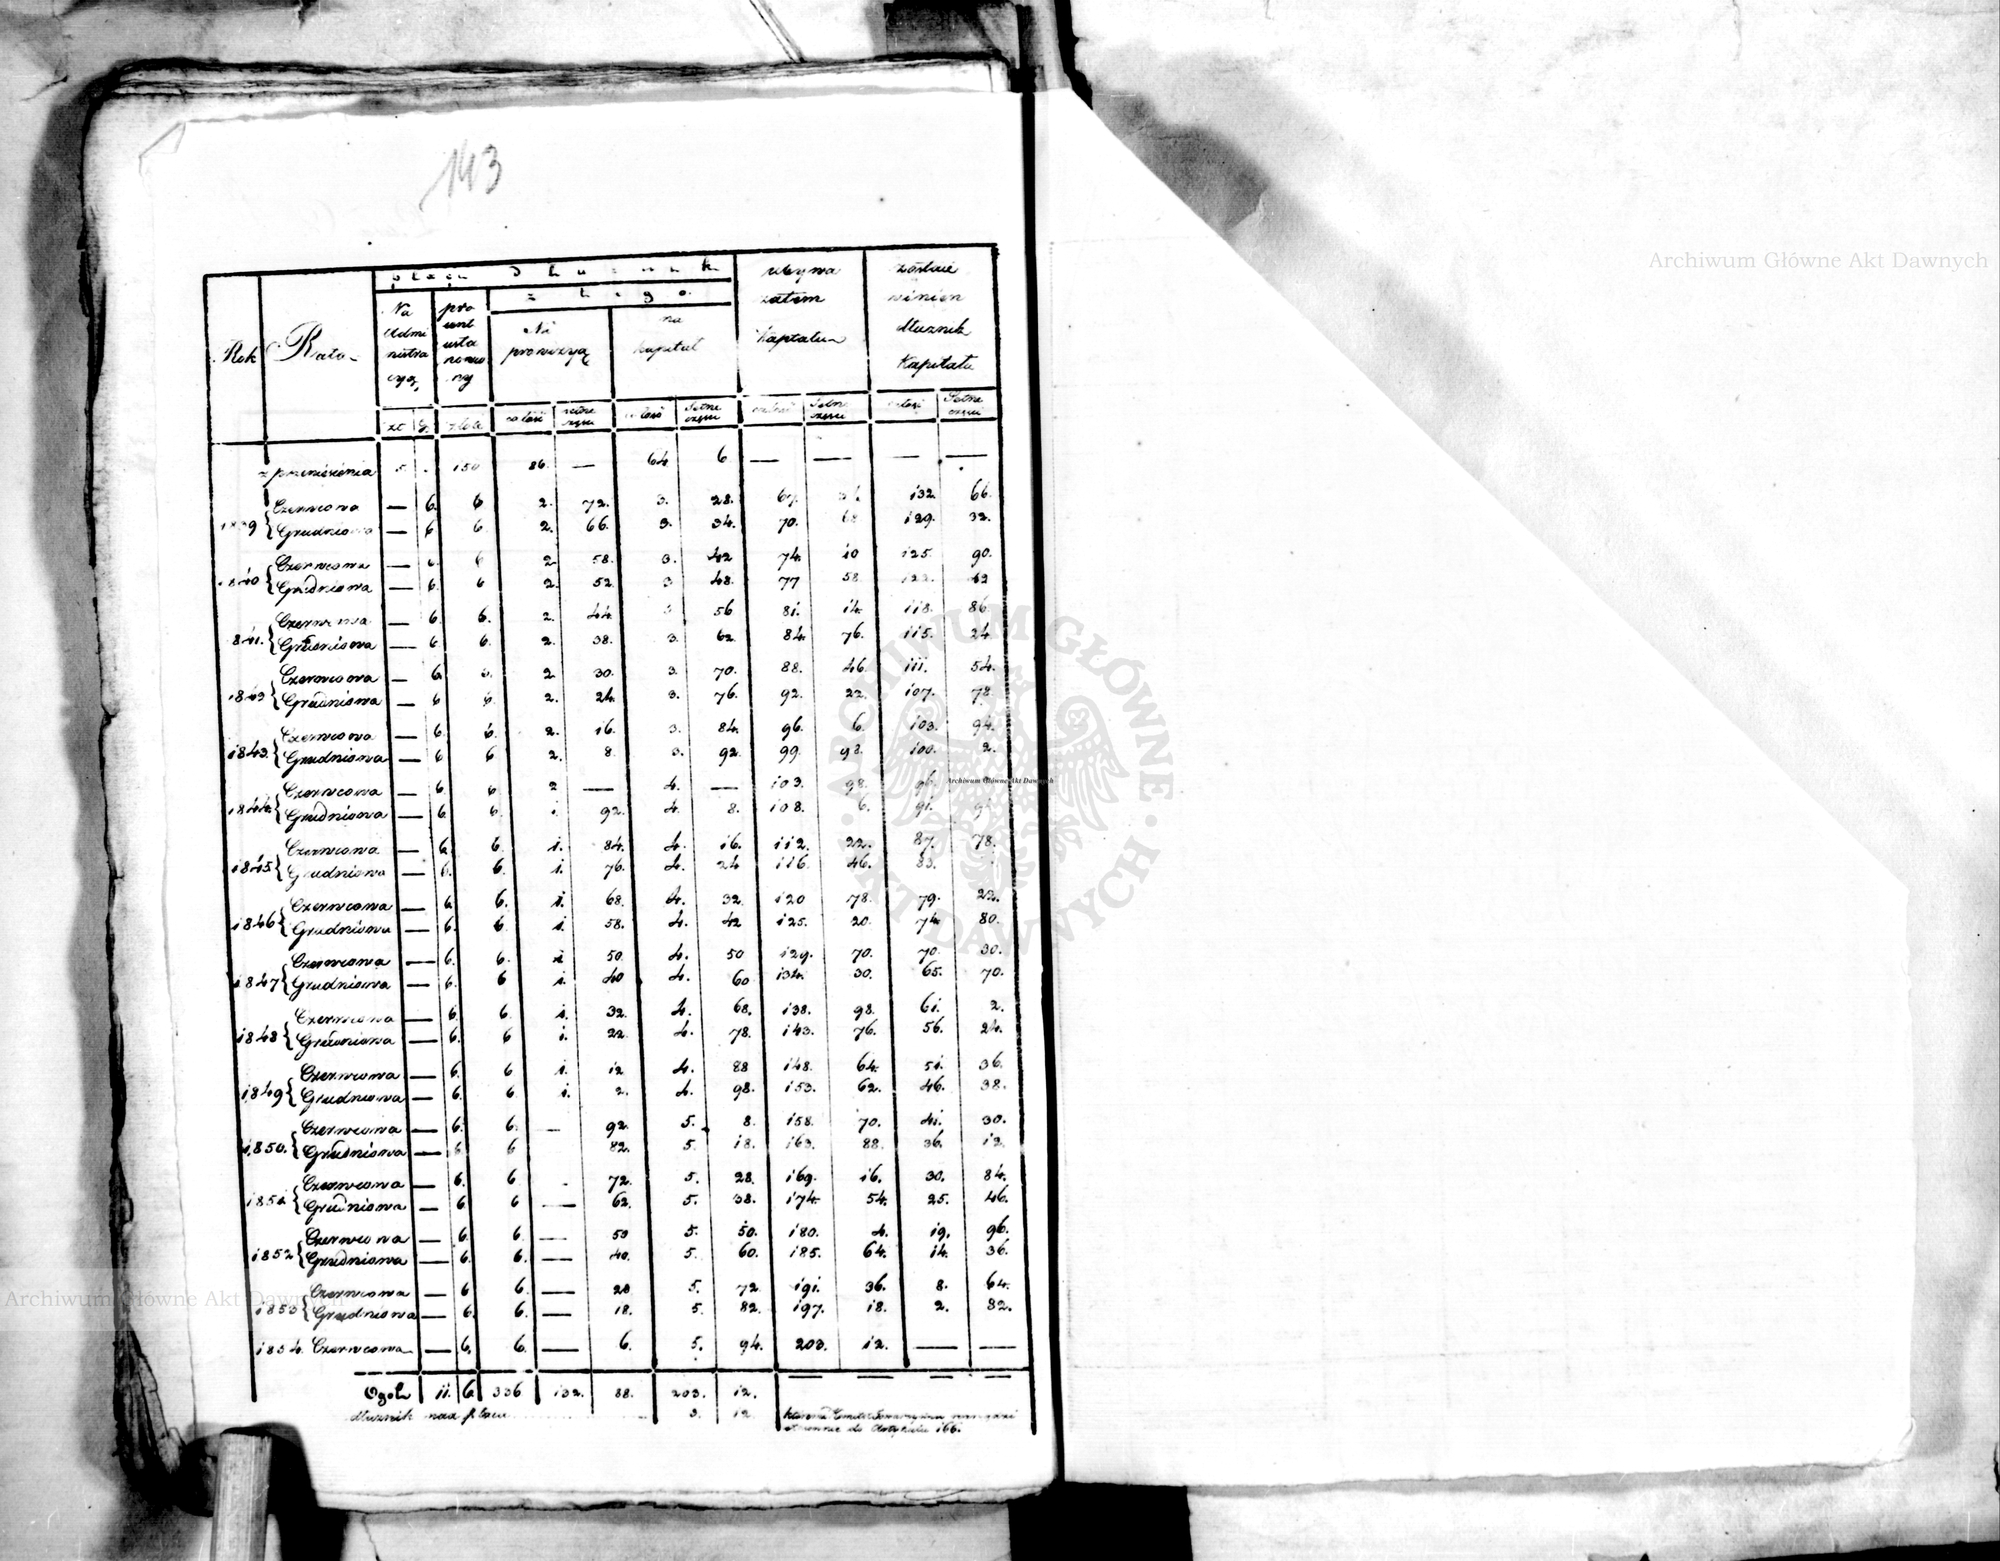 143
płaci Dłużnik
z tego
Rok
Rata
Na Admi nistra cyą
pro cent usta nowio ny
Na prowizyą
na kapitał
ubywa zatem Kapitału
zostaie winien dłużnik Kapitału
zł g. złote całość setne części całość Setne części całość Setne części całość Setne części
z przeniesienia 5. . 150 86. — 64 6 — — — —
Czerwcowa — 6. 6 2. 72. 3. 28. 67. 132. 66.
1839 { Grudniowa — 6 6. 2. 66. 3. 34. 70. 68 129. 32.
Czerwcowa — 6. 6 2 58. 3. 42 74. 10 125. 90.
1840 { Grudniowa — 6. 6 2. 52. 3 48. 77 58. 122. 42
Czerwcowa — 6. 6. 2. 44. 3 56 81. 14. 118. 86.
1841. { Grudniowa — 6. 6. 2. 38. 3. 62. 84. 76. 115. 24.
Czerwcowa — 6. 6. 2. 30. 3. 70. 88. 46. 111. 54.
1842 { Grudniowa — 6 6 2. 24. 3. 76. 92. 22. 107. 78.
Czerwcowa — 6. 6. 2. 16. 3. 84. 96. 6. 103. 94.
1843. { Grudniowa — 6 6 2. 8. 3. 92. 99. 98. 100. 2.
Czerwcowa — 6. 6 2 — 4. — 103. 98. 96.
1844. { Grudniowa — 6. 6. 1. 92. 4. 8. 108. 6. 91.
Czerwcowa — 6. 6. 1. 84. 4. 16. 112. 22. 87. 78.
1845 { Grudniowa — 6. 6. 1. 76. 4. 24 116. 46. 83.
Czerwcowa — 6. 6. 1. 68. 4. 32. 120 78. 79. 22.
1846 { Grudniowa — 6. 6 1. 58. 4. 42 125. 20. 74. 80.
Czerwcowa — 6. 6. 1 50. 4. 50 129. 70. 70. 30.
1847 { Grudniowa — 6. 6 1. 40 4. 60 134. 30. 65. 70.
Czerwcowa — 6. 6. 1. 32. 4. 68. 138. 98. 61. 2.
1848 { Grudniowa — 6. 6 1. 22. 4. 78. 143. 76. 56. 24.
Czerwcowa — 6. 6 1. 12 4. 88 148. 64. 51. 36.
1849 { Grudniowa — 6. 6 1. 2. 4. 98. 153. 62. 46. 38.
Czerwcowa — 6. 6. — 92. 5. 8. 158. 70. 41. 30.
1850. { Grudniowa — 6. 6 82. 5. 18. 163. 88. 36. 12.
Czerwcowa — 6. 6 - 72. 5. 28. 169. 16. 30. 84.
1851 { Grudniowa — 6. 6 — 62. 5. 38. 174. 54. 25. 46.
Czerwcowa — 6. 6. — 50 5. 50. 180. 4. 19. 96.
1852 { Grudniowa — 6. 6. — 40. 5. 60. 185. 64. 14. 36.
Czerwcowa — 6 6. — 28 5. 72 191. 36. 8. 64.
1853 { Grudniowa — 6. 6. — 18. 5. 82. 197. 18. 2. 82.
1854. Czerwcowa — 6. 6. — 6. 5. 94. 203. 12. — —
Ogół 11. 6. 336 132. 88. 203. 12.
dłużnik nad płaca 3. 12.
do Artykułu 166.
Archiwum Główne Akt Dawnych
Archiwum Główne Akt Dawnych
Archiwum Główne Akt Dawnych
ARCHIWUM GŁÓWNE AKT DAWNYCH